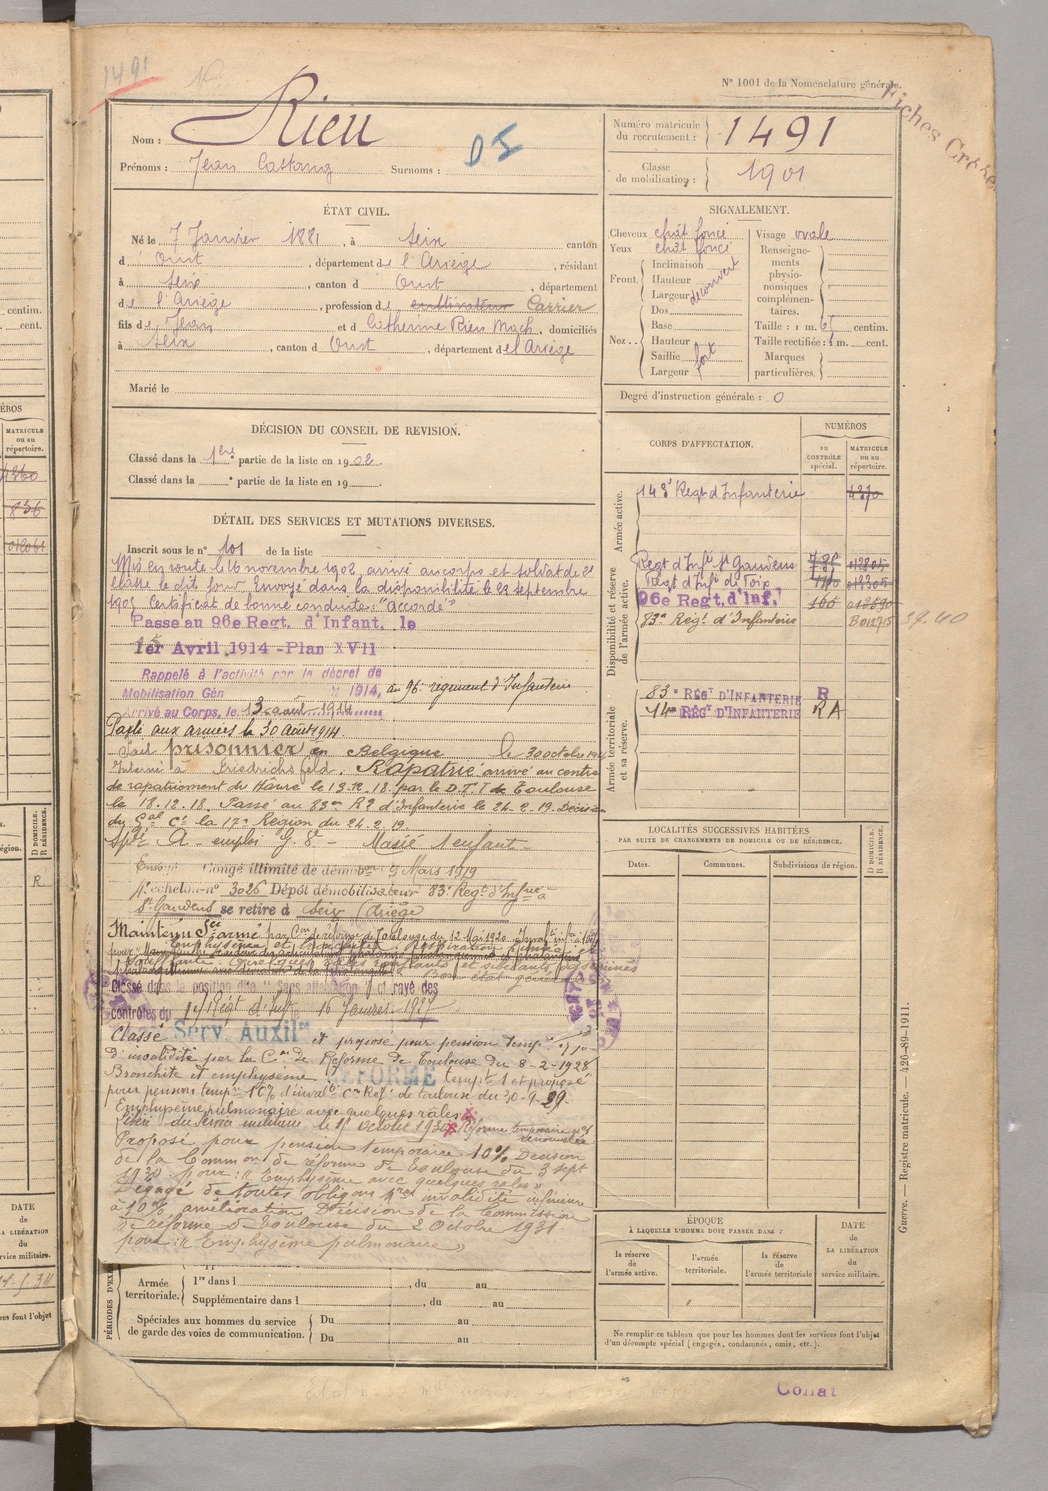 1491
N° 1001 de la Nomenclature générale.
Fiches
Nom : Rieu
Prénoms : Jean Castang Surnoms :
Numéro matricule du recrutement : 1491
Classe de mobilisation : 1901
ÉTAT CIVIL.
Né le 7 Janvier 1881, à Seix canton
d' Oust, département de l'Ariège, résidant
à Seix, canton d' Oust, département
de l'Ariège, profession de cultivateur Carrier
fils de Jean et d Catherine Rieu Mach, domiciliés
à Seix, canton d' Oust, département de l'Ariège
Marié le
SIGNALEMENT.
Cheveux chât foncé
Yeux chât foncé
Front Inclinaison
Hauteur
Largeur
découvert
Nez Dos
Base
Hauteur
Saillie
Largeur
fort
Visage ovale
Renseignements physionomiques complémentaires.
Taille : 1 m. 65 centim.
Taille rectifiée : 1 m. cent.
Marques particulières.
Degré d'instruction générale : 0
DÉCISION DU CONSEIL DE REVISION.
Classé dans la 1ère partie de la liste en 1902.
Classé dans la e partie de la liste en 19
CORPS D'AFFECTATION.
NUMÉROS
au CONTRÔLE spécial.
MATRICULE ou au répertoire.
Armée active.
143e Regt d'Infanterie 4370
Disponibilité et réserve de l'armée active.
Regt d'Infie St Gaudens
Regt d'Infie de Foix
96e Regt. d'Inf.
83e Régt d'Infanterie
Armée territoriale et sa réserve.
83e RÉGT D'INFANTERIE R
14me RÉGT D'INFANTERIE RA
DÉTAIL DES SERVICES ET MUTATIONS DIVERSES.
Inscrit sous le n° 101 de la liste
Mis en route le 16 novembre 1902, arrivé au corps et soldat de 2e
classe le dit jour. Envoyé dans la disponibilité le 23 septembre
1905 Certificat de bonne conduite : "accordé"
Passe au 96e Regt. d'Infant. le
1er Avril 1914 - Plan XVII
Rappelé à l'activité par le décret de
Mobilisation Gén 1914, au 96e régiment d'Infanterie
Arrivé au Corps, le 13 août 1914
Passé aux armées le 30 Août 1914.
Fait prisonnier en Belgique le 30 octobre 1914
Interné à Friedrichsfeld. Rapatrié arrivé au centre
de rapatriement du Havre le 13.12.18. par le D.T.I de Toulouse
le 18.12.18. Passé au 83me RI d'Infanterie le 24.2.19. Décision
du Gal Ct la 17e Région du 24.2.19
Marié 1 enfant
Envoyé Congé illimité de démobon 9 Mars 1919
échelon n° 3026 Dépôt démobilisateur 83e Regt d'Infrie à
St Gaudens se retire à Seix (Ariège
Maintenu Sce armé par Con de réforme de Toulouse du 12 Mai 1920
Classé dans la position dite "Sans affectation" et rayé des
contrôles du Régt d'Inf le 16 Janvier 1927
Classé Serv. Auxilre et proposé pour pension temp. 10%
d'invalidité par la Con de Réforme de Toulouse du 8-2-1928
Bronchite et emphysème RÉFORMÉ tempre 1 et proposé
pour pension tempre 10% d'invalté Con Réf. de Toulouse du 30-9-29
Emphysème pulmonaire avec quelques râles
Libéré du service militaire le 1er Octobre 1930 Réforme temporaire n°1
renouvelée
Proposé pour pension temporaire 10% Décision
de la Common de réforme de Toulouse du 3 sept
1930 pour : "Emphysème avec quelques râles"
Dégagé de toutes obligons mres invalidité inférieure
à 10% amélioration Décision de la Commission
de réforme de Toulouse du 2 Octobre 1931
pour : "Emphysème pulmonaire"
LOCALITÉS SUCCESSIVES HABITÉES
PAR SUITE DE CHANGEMENTS DE DOMICILE OU DE RÉSIDENCE.
Dates. Communes. Subdivisions de région.
D DOMICILE. R RÉSIDENCE.
ÉPOQUE
À LAQUELLE L'HOMME DOIT PASSER DANS :
la réserve de l'armée active.
l'armée territoriale.
la réserve de l'armée territoriale
DATE DE LA LIBÉRATION DU service militaire.
Ne remplir ce tableau que pour les hommes dont les services font l'objet
d'un décompte spécial (engagés, condamnés, omis, etc.).
Armée territoriale. 1re dans l , du au
Supplémentaire dans l , du au
Spéciales aux hommes du service de garde des voies de communication. Du au
Du au
Guerre. — Registre matricule. — 426-89-1911.